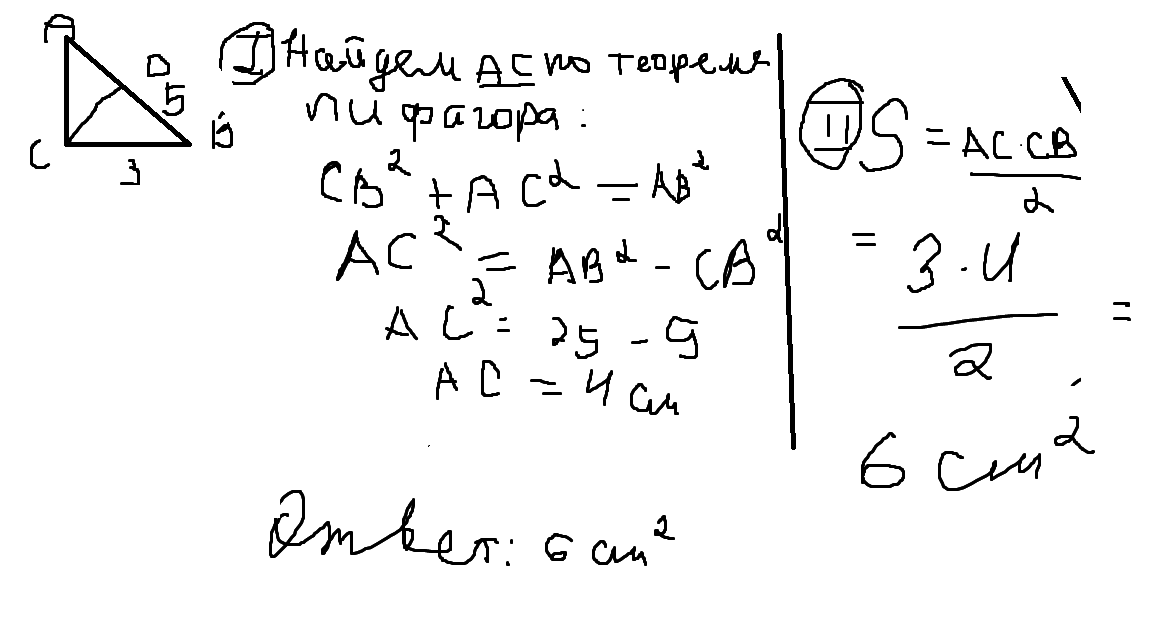 A
D
5
C
B
3
I Найдем AC по теореме
пифагора:
CB² + AC² = AB²
AC² = AB² - CB²
AC² = 25 - 9
AC = 4 см
II S = AC·CB
2
= 3·4 =
2
6 см²
Ответ: 6 см²